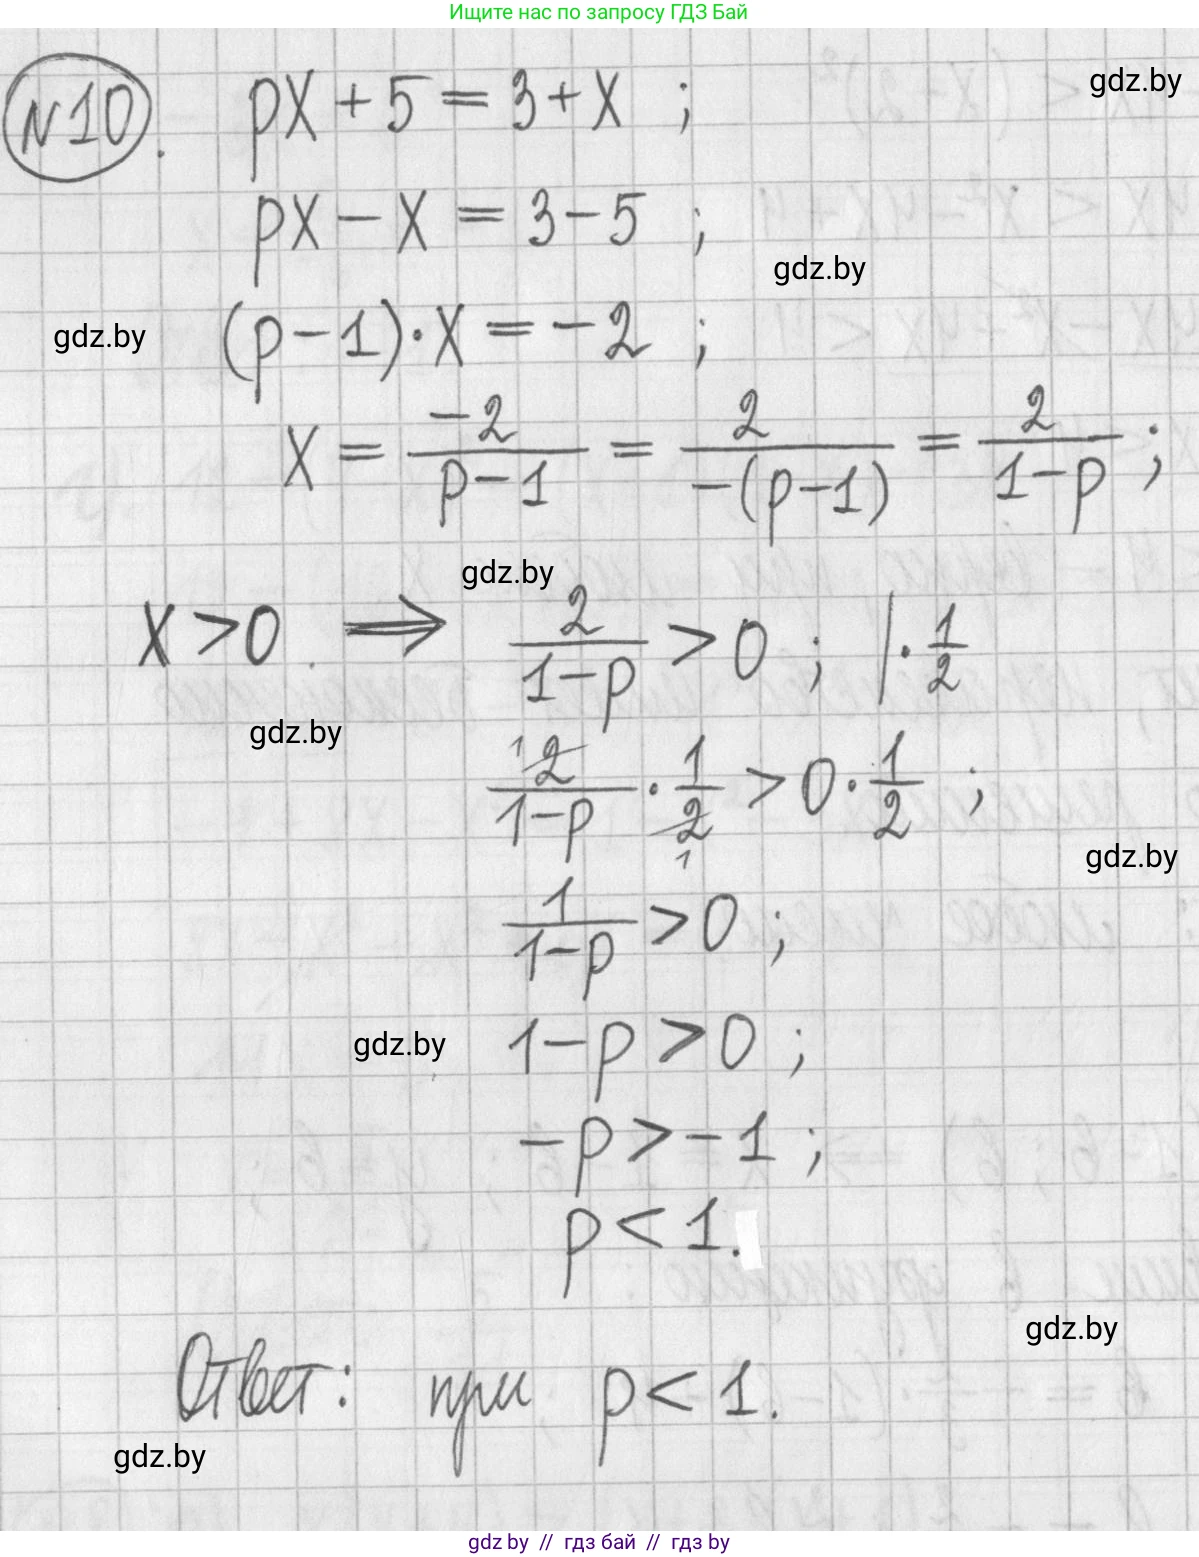 Ищите нас по запросу ГДЗ Бай
№10. px + 5 = 3 + x ;
gdz.by
px − x = 3 − 5 ;
gdz.by
(p − 1) · x = −2 ;
gdz.by
x = −2/(p − 1) = 2/(−(p − 1)) = 2/(1 − p) ;
gdz.by
x > 0. ⟹ 2/(1 − p) > 0 ; | · 1/2
gdz.by
2/(1 − p) · 1/2 > 0 · 1/2 ;
gdz.by
1/(1 − p) > 0 ;
1 − p > 0 ;
gdz.by
−p > −1 ;
p < 1.
gdz.by
Ответ: при p < 1.
gdz.by
gdz.by // гдз бай // gdz by